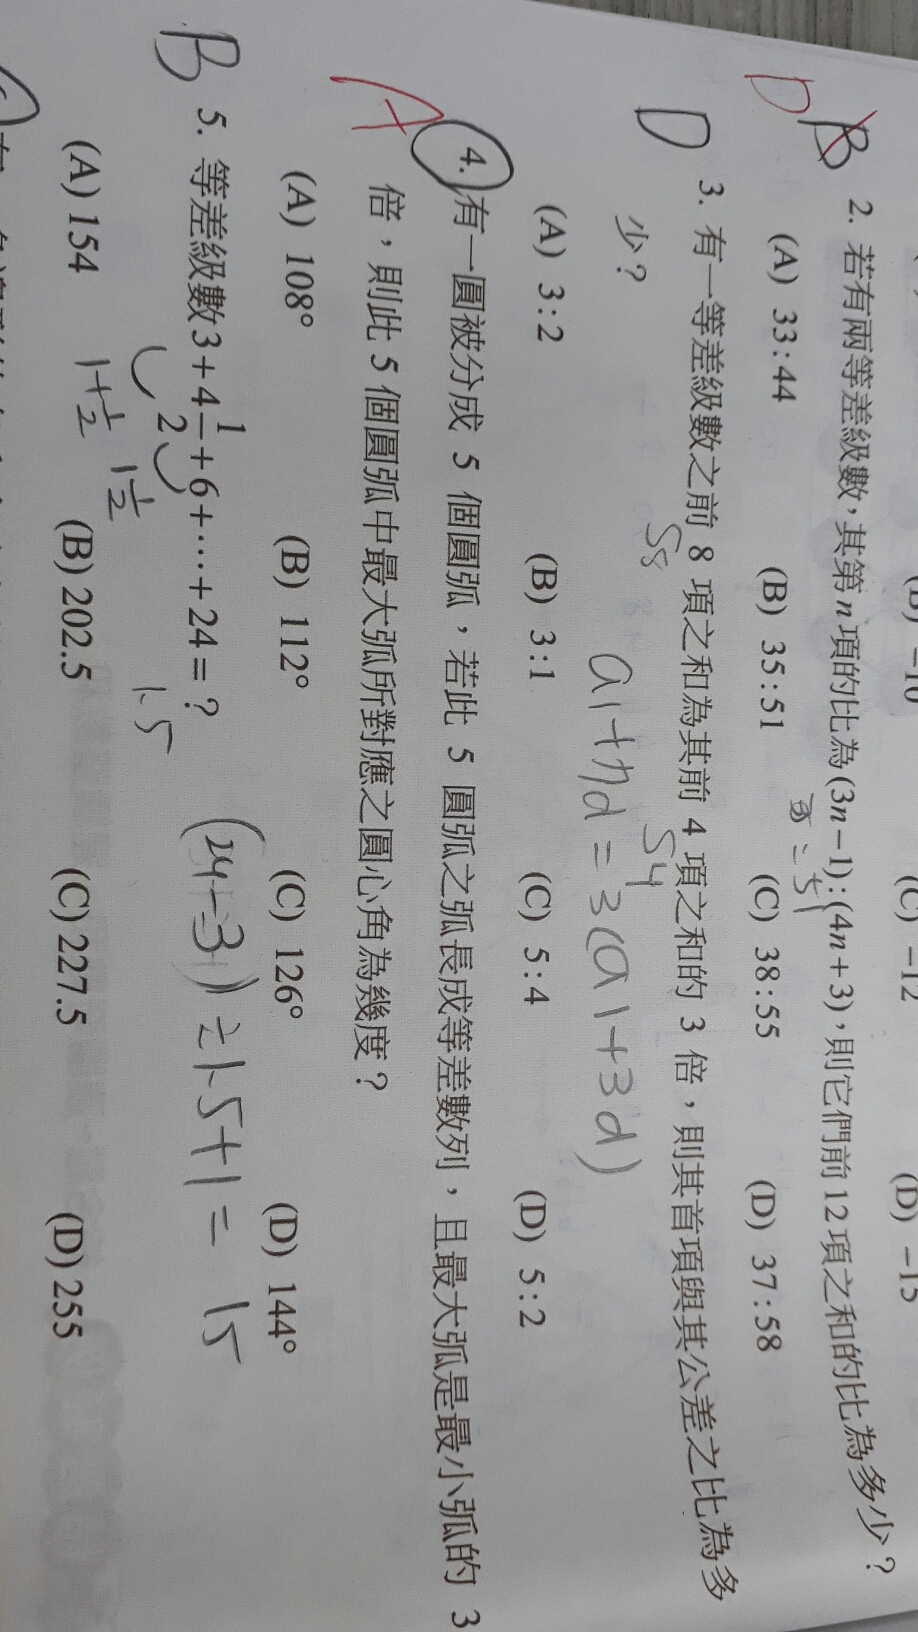 (B) -10 (C) -12 (D) -15
D B 2. 若有兩等差級數，其第 n 項的比為 (3n-1):(4n+3)，則它們前 12 項之和的比為多少？
(A) 33:44 (B) 35:51 (C) 38:55 (D) 37:58
D 3. 有一等差級數之前 8 項之和為其前 4 項之和的 3 倍，則其首項與其公差之比為多
S8 S4
少？
a1+7d=3(a1+3d)
(A) 3:2 (B) 3:1 (C) 5:4 (D) 5:2
A 4. 有一圓被分成 5 個圓弧，若此 5 圓弧之弧長成等差數列，且最大弧是最小弧的 3
倍，則此 5 個圓弧中最大弧所對應之圓心角為幾度？
(A) 108° (B) 112° (C) 126° (D) 144°
B 5. 等差級數 3+4 1/2+6+⋯+24=？
1.5
(24-3)÷1.5+1= 15
1+1/2 1 1/2
(A) 154 (B) 202.5 (C) 227.5 (D) 255